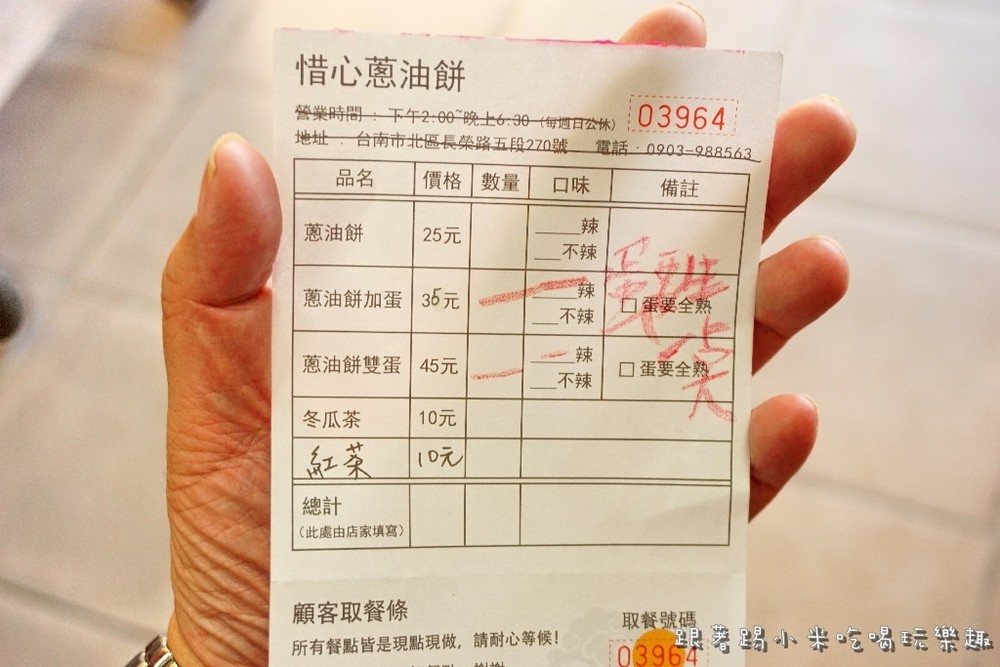 惜心蔥油餅
03964
營業時間 : 下午2:00~晚上6:30 (每週日公休)
地址 : 台南市北區長榮路五段270號 電話:0903-988563
品名 價格 數量 口味 備註
蔥油餅 25元 ___辣
___不辣
蔥油餅加蛋 35元 一 ___辣
___不辣 □ 蛋要全熟
蔥油餅雙蛋 45元 一 ___辣
___不辣 □ 蛋要全熟
蛋要半
冬瓜茶 10元
紅茶 10元
總計
(此處由店家填寫)
顧客取餐條
取餐號碼
所有餐點皆是現點現做,請耐心等候!
03964
謝謝
跟著踢小米吃喝玩樂趣